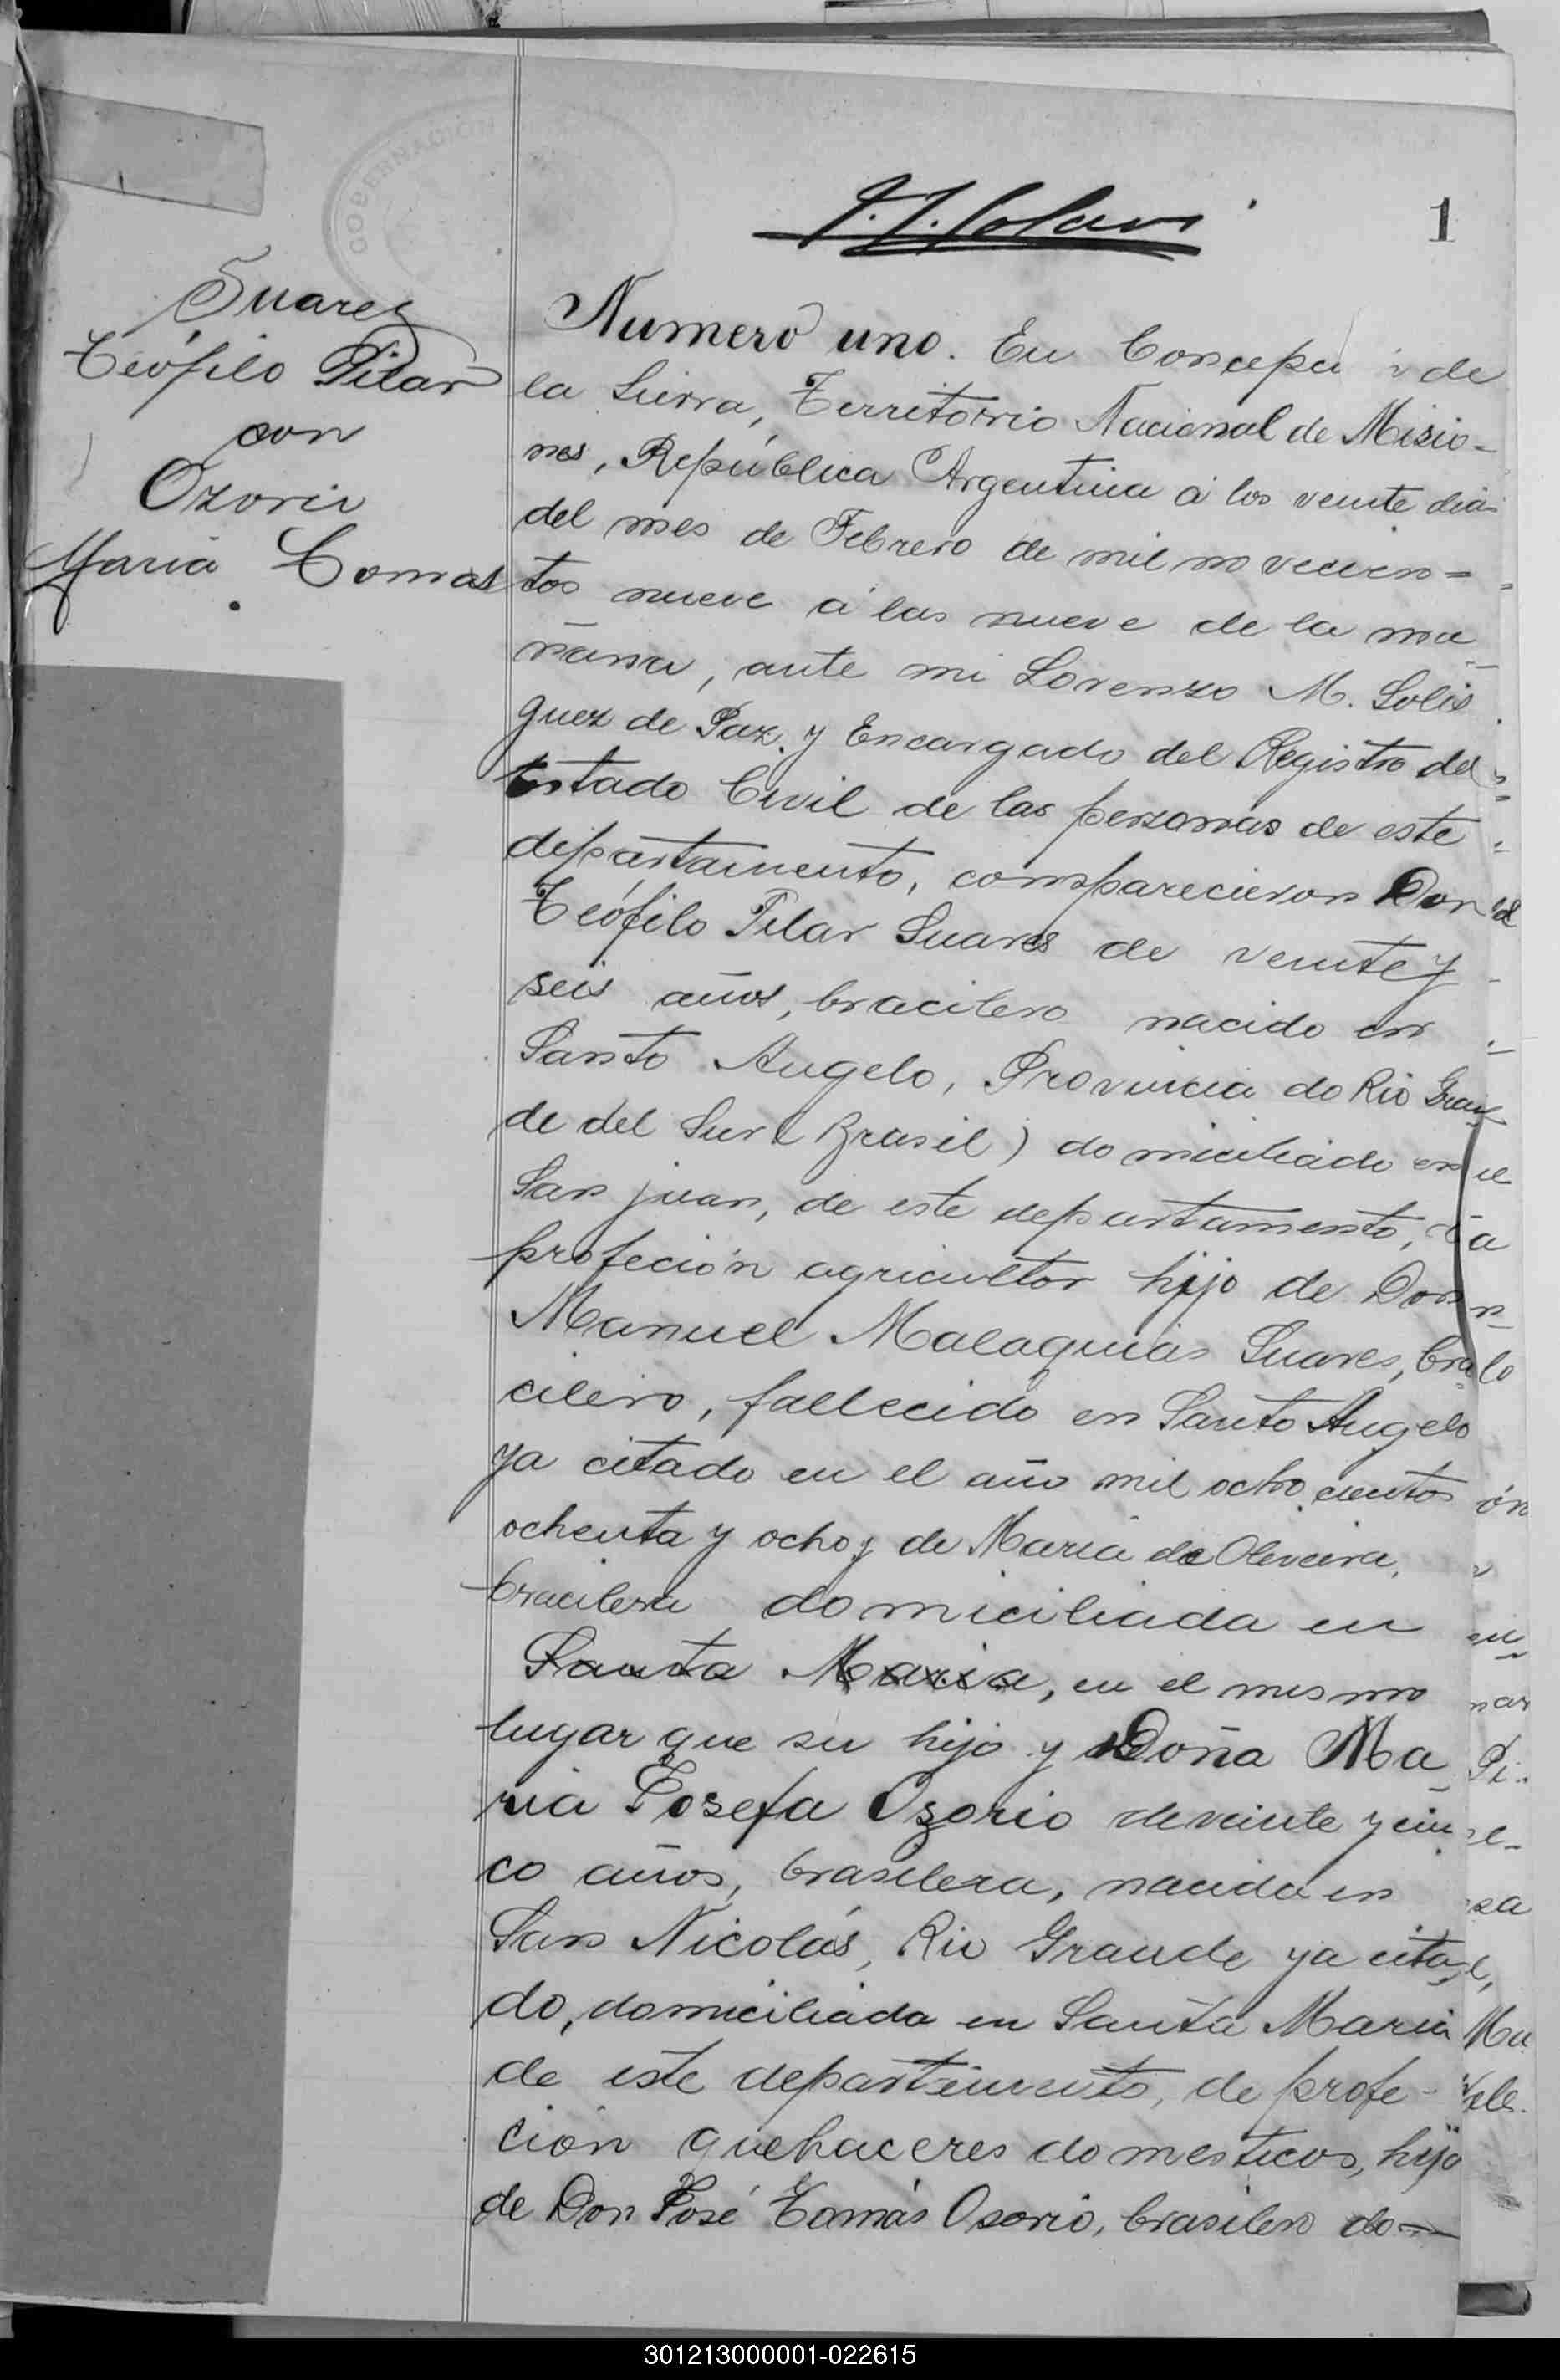 GOBERNACION
1
Suarez
Teófilo Pilar
con
Ozorio
Maria Tomas
Numero uno. En de
la Sierra, Territorrio Nacional de Misio-
nes, República Argentina á los veinte dias
del mes de Febrero de mil novecien=
tos nueve á las nueve de la ma
ñana, ante mi Lorenzo M. Solis
Juez de Paz y Encargado del Registro del
Estado Civil de las personas de este
departamento, comparecieron Don
Teófilo Pilar Suares de veinte y
seis años, bracilero nacido en
Santo Angelo, Provincia do Rio Gran
de del Sur (Brasil) domiciliado en
San juan, de este departamento,
profeción agricultor hijo de Don
Manuel Malaquias Suares, bra
cilero, fallecido en Santo Angelo
ya citado en el año mil ochocientos
ochenta y ocho y de Maria de Oliveira,
bracilera domiciliada en
Santa Maria, en el mismo
lugar que su hijo y Doña Ma
ria Josefa Ozorio de veinte y cin
co años, brasilera, nacida en
San Nicolás, Rio Grande ya cita
do, domiciliada en Santa Maria
de este departamento, de profe-
ción quehaceres domesticos, hija
de Don José Tomás Osorio, brasilero do—
301213000001-022615